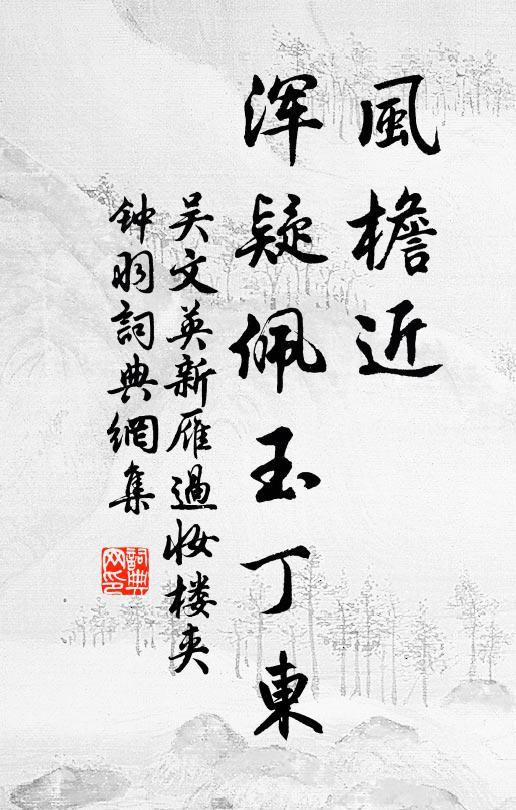 風檐近
浑疑佩玉丁東
吴文英新雁過妆楼夹
钟羽詞典網集
詞典
网印